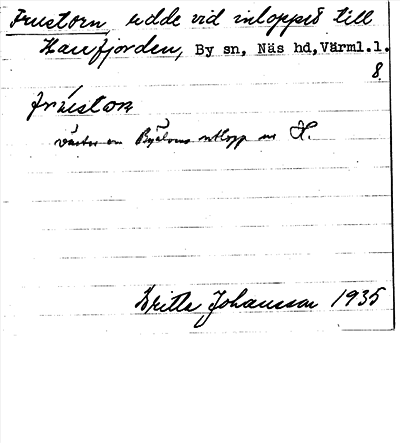 Frustorn, udde vid inloppet till
Harefjorden, By sn, Näs hd, Värml.l.
8.
frústorn
väster om Byälvens utlopp ur H.
Britta Johansson 1935